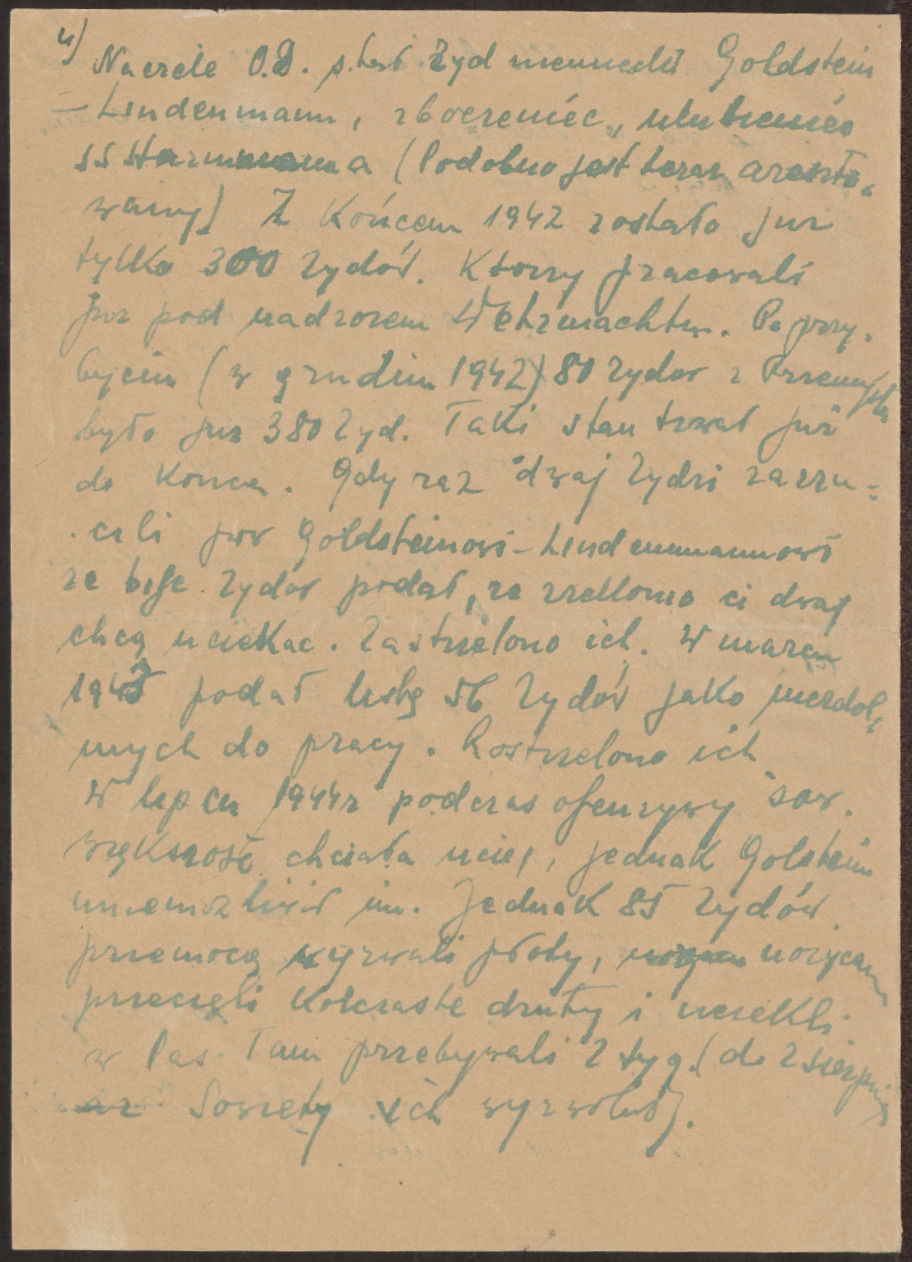 4)
Na czele O.D. stał żyd niemiecki Goldstein
– Lindenmann, zboczeniec, ulubieniec
SS (Podobno jest teraz areszto-
wany) Z Końcem 1942 zostało już
tylko 300 żydów. Ktorzy pracowali
już pod nadzorem Wehrmachtu. Po przy.
byciu (w grudniu 1942) 80 żydow z Przemyśla
było już 380 żyd. Taki stan trwał już
do Konca. Gdy raz dwaj żydzi zarzu-
cili Goldsteinowi – Lindenmannowi
że bije żydów podał, ze rzekomo ci dwaj
chcą uciekac. Zastrzelono ich. W marcu
1943 podał listę 56 żydów jako niezdol,
nych do pracy. Rostrzelono ich
W lipcu 1944r podczas ofenzywy sow.
większość chciała uciec, jednak Golstein
uniemożliwił im. Jednak 85 żydów
przemocą wyrwali płoty, nożycami
przecięli Kolczaste druty i uciekli
w las. Tam przebywali 2 tyg. (do 2 sierpnia
Sowiety ich wyzwolili).